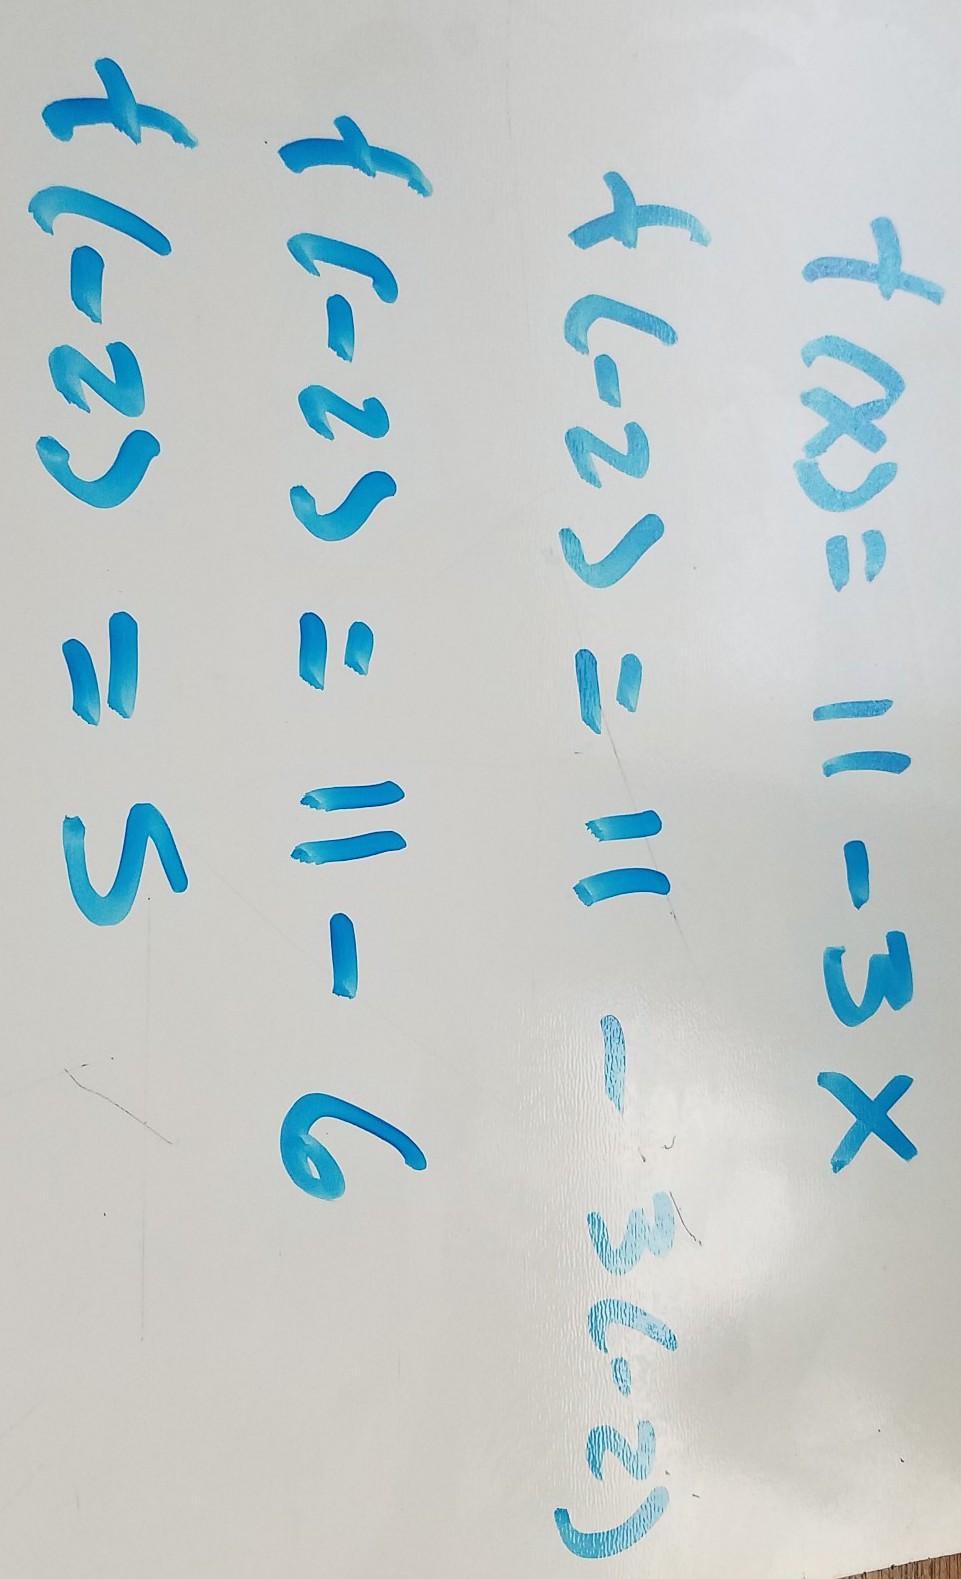 f(x) = 11 - 3x
f(-2) = 11 - 3(-2)
f(-2) = 11 - 6
f(-2) = 5